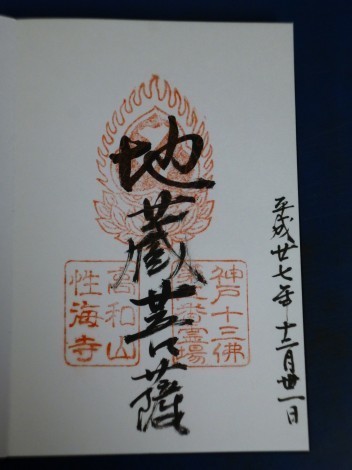 平成廿七年十二月卅一日
地蔵菩薩
神戸十三佛
番霊場
高和山
性海寺